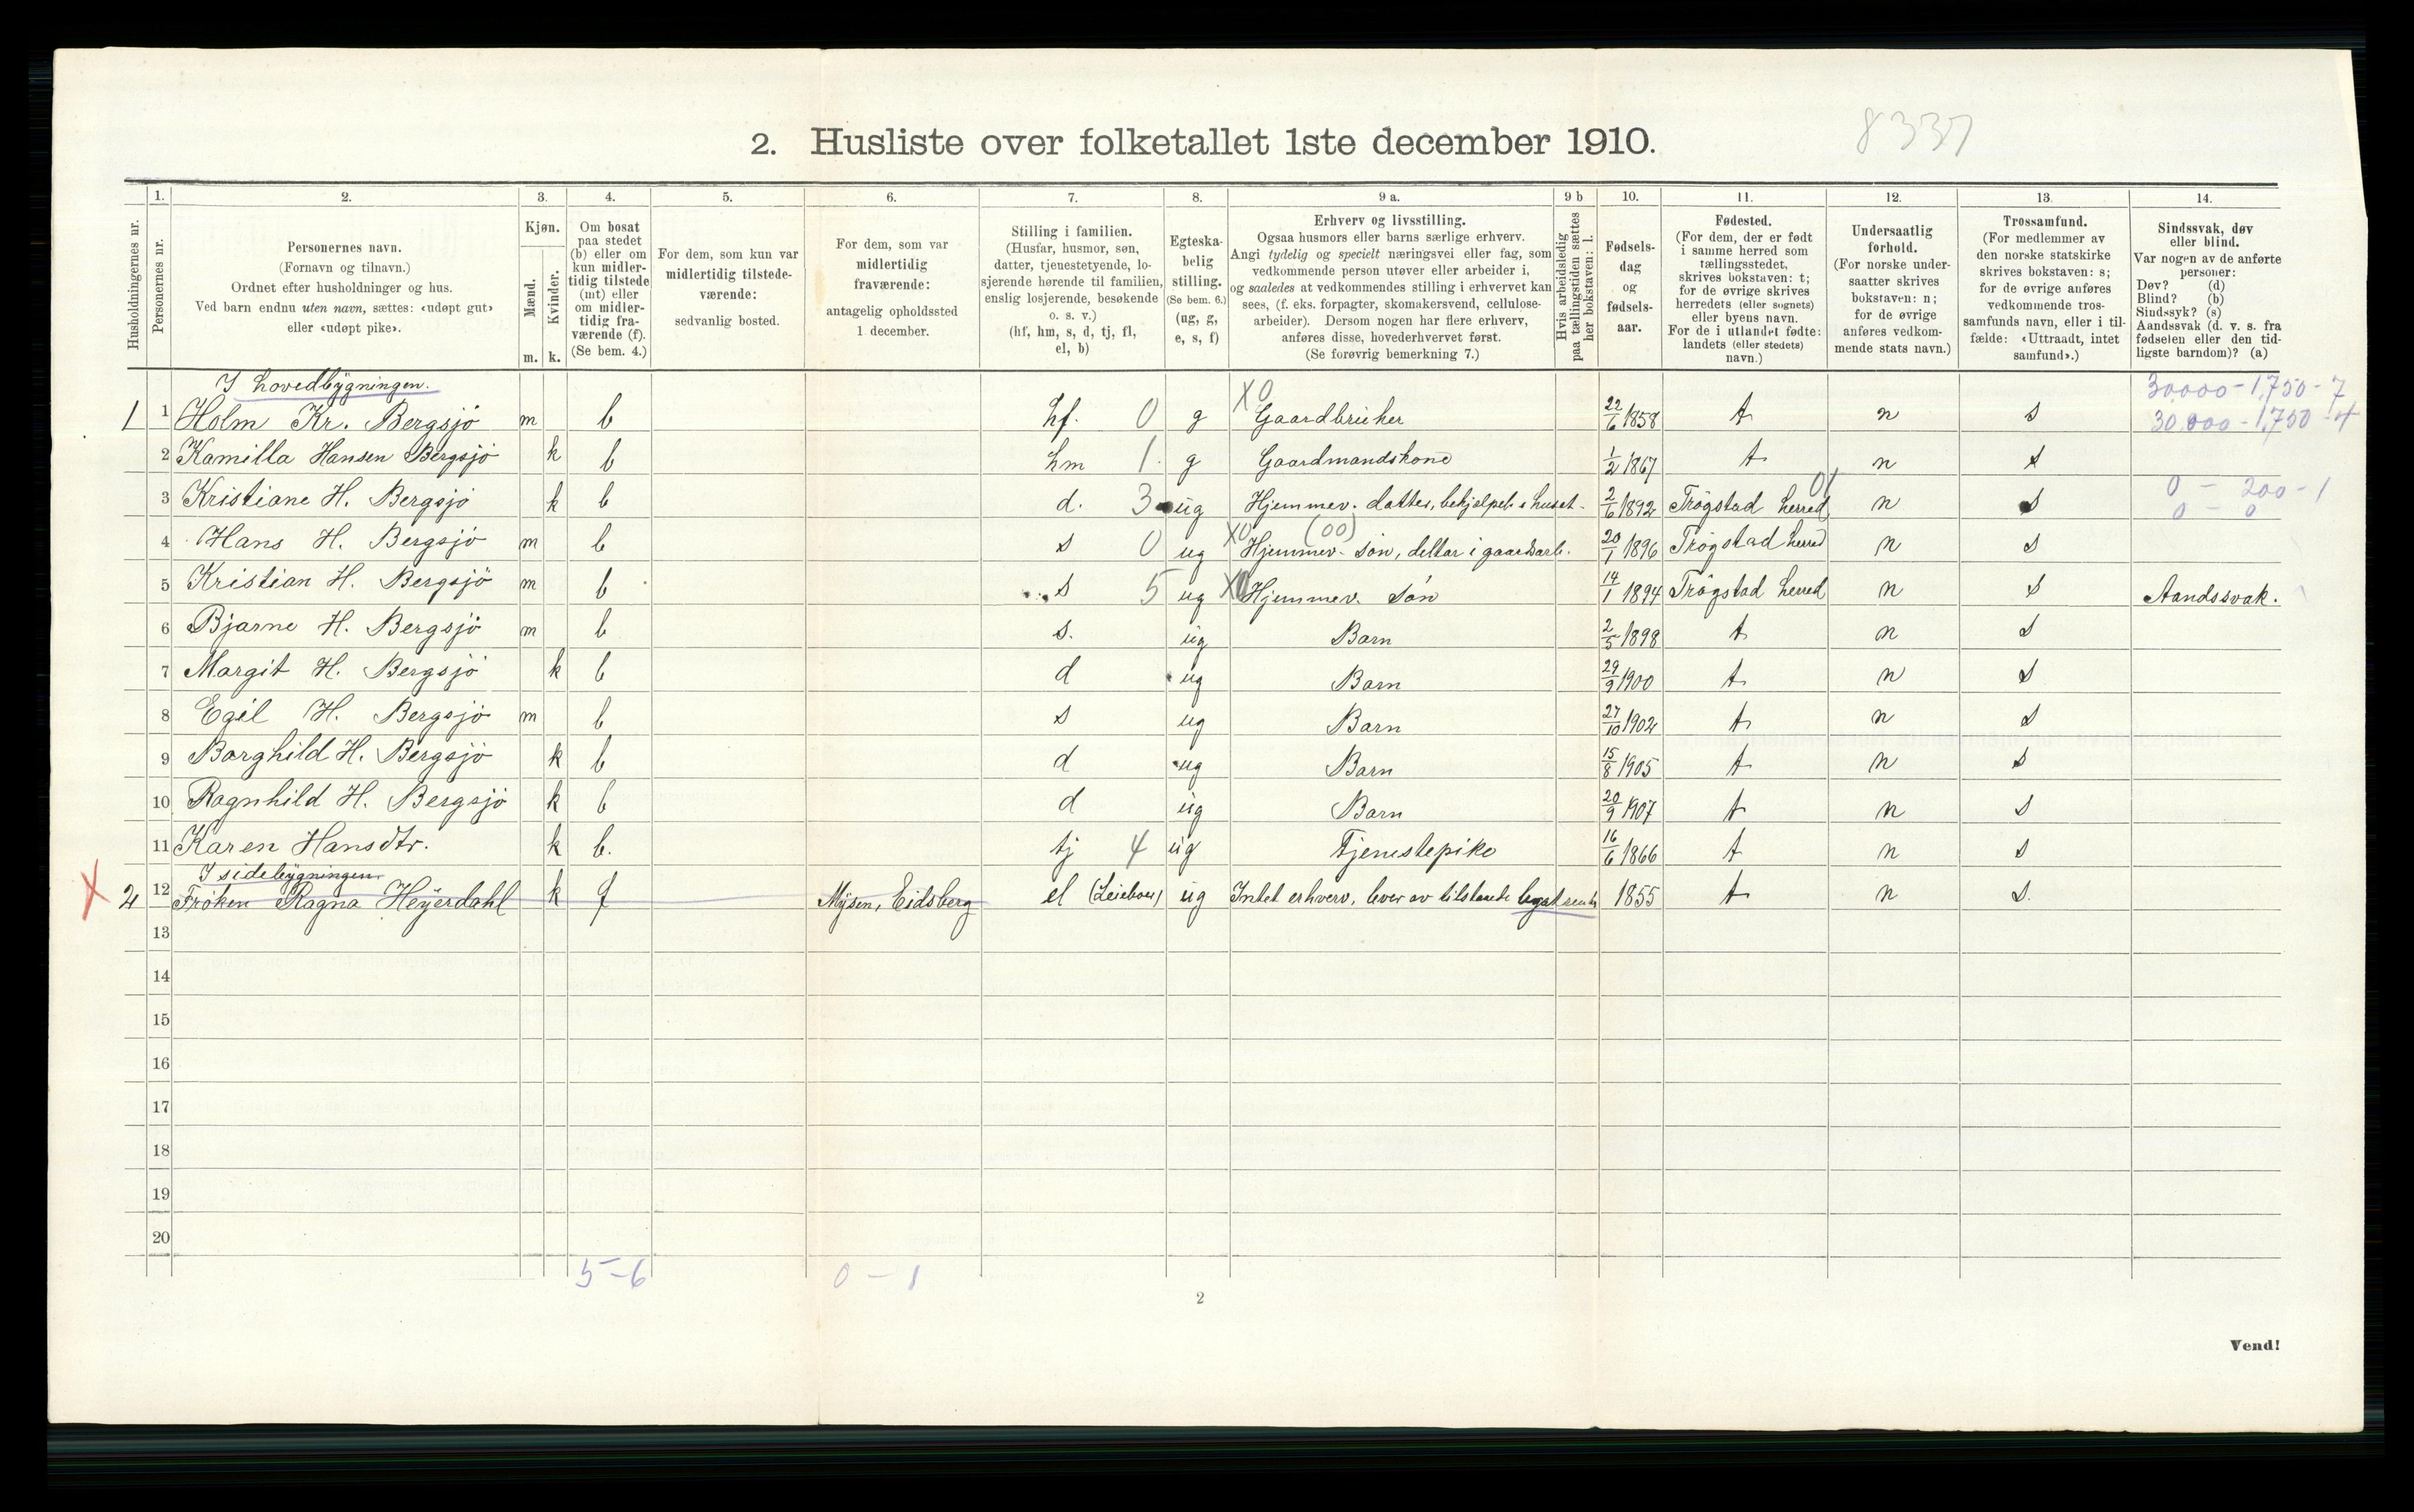 8337
2. Husliste over folketallet 1ste december 1910.
Husholdningernes nr.
1.
Personernes nr.
2.
Personernes navn.
(Fornavn og tilnavn.)
Ordnet efter husholdninger og hus.
Ved barn endnu uten navn, sættes: «udøpt gut»
eller «udøpt pike».
3.
Kjøn.
Mænd.
Kvinder.
m. k.
4.
Om bosat
paa stedet
(b) eller om
kun midler-
tidig tilstede
(mt) eller
om midler-
tidig fra-
værende (f).
(Se bem. 4.)
5.
For dem, som kun var
midlertidig tilstede-
værende:
sedvanlig bosted.
6.
For dem, som var
midlertidig
fraværende:
antagelig opholdssted
1 december.
7.
Stilling i familien.
(Husfar, husmor, søn,
datter, tjenestetyende, lo-
sjerende hørende til familien,
enslig losjerende, besøkende
o. s. v.)
(hf, hm, s, d, tj, fl,
el, b)
8.
Egteska-
belig
stilling.
(Se bem. 6.)
(ug, g,
e, s, f)
9 a.
Erhverv og livsstilling.
Ogsaa husmors eller barns særlige erhverv.
Angi tydelig og specielt næringsvei eller fag, som
vedkommende person utøver eller arbeider i,
og saaledes at vedkommendes stilling i erhvervet kan
sees, (f. eks. forpagter, skomakersvend, cellulose-
arbeider). Dersom nogen har flere erhverv,
anføres disse, hovederhvervet først.
(Se forøvrig bemerkning 7.)
9 b
Hvis arbeidsledig
paa tællingstiden sættes
her bokstaven: l.
10.
Fødsels-
dag
og
fødsels-
aar.
11.
Fødested.
(For dem, der er født
i samme herred som
tællingsstedet,
skrives bokstaven: t;
for de øvrige skrives
herredets (eller sognets)
eller byens navn.
For de i utlandet fødte:
landets (eller stedets)
navn.)
12.
Undersaatlig
forhold.
(For norske under-
saatter skrives
bokstaven: n;
for de øvrige
anføres vedkom-
mende stats navn.)
13.
Trossamfund.
(For medlemmer av
den norske statskirke
skrives bokstaven: s;
for de øvrige anføres
vedkommende tros-
samfunds navn, eller i til-
fælde: «Uttraadt, intet
samfund».)
14.
Sindssvak, døv
eller blind.
Var nogen av de anførte
personer:
Døv? (d)
Blind? (b)
Sindssyk? (s)
Aandssvak (d. v. s. fra
fødselen eller den tid-
ligste barndom)? (a)
I hovedbygningen. X0 30,000-1,750-7
1 1 Holm Kr. Bergsjö m b hf. 0 g Gaardbruker 22/6 1858 t n s 30,000-1,750-4
2 Kamilla Hansen Bergsjö k b hm 1. g Gaardmandskone 1/2 1867 t n s
3 Kristiane H. Bergsjö k b d. 3 ug Hjemmev. datter, behjelpel. i huset. 2/6 1892 Trögstad herred 01 n s 0 - 200 - 1
0 - 0
4 Hans H. Bergsjö m b s 0 ug X0 (00) Hjemmev. sön, deltar i gaardsarb. 20/1 1896 Trögstad herred n s
5 Kristian H. Bergsjö m b s 5 ug X0 Hjemmev. sön 14/1 1894 Trögstad herred n s Aandssvak.
6 Bjarne H. Bergsjö m b s. ug Barn 2/5 1898 t n s
7 Margit H. Bergsjö k b d ug Barn 29/9 1900 t n s
8 Egil H. Bergsjö m b s ug Barn 27/10 1902 t n s
9 Borghild H. Bergsjö k b d ug Barn 15/8 1905 t n s
10 Ragnhild H. Bergsjö k b d ug Barn 20/9 1907 t n s
11 Karen Hansdtr. k b. tj 4 ug Tjenestepike 16/6 1866 t n s
I sidebygningen.
X 2 12 Fröken Ragna Heyerdahl k f Mysen, Eidsberg el (Leieboer) ug Intet erhverv, lever av tilstaaede legatrenter 1855 t n s.
13
14
15
16
17
18
19
20
5-6 0-1
2
Vend!